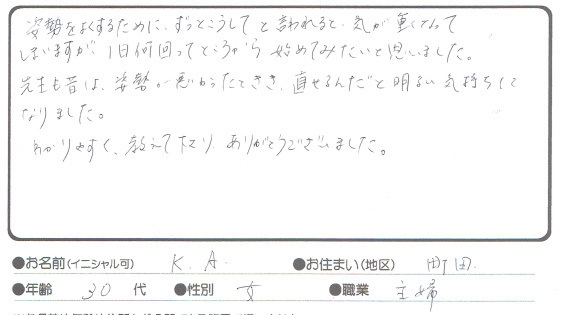 姿勢をよくするために、ずっとこうしてと言われると、気が重くなって
しまいますが、1日何回ってところから始めてみたいと思いました。
先生も昔は、姿勢が悪かったときき、直せるんだと明るい気持ちに
なりました。
わかりやすく、教えて下さり、ありがとうございました。
●お名前(イニシャル可) K.A. ●お住まい(地区) 町田.
●年齢 30 代 ●性別 女 ●職業 主婦